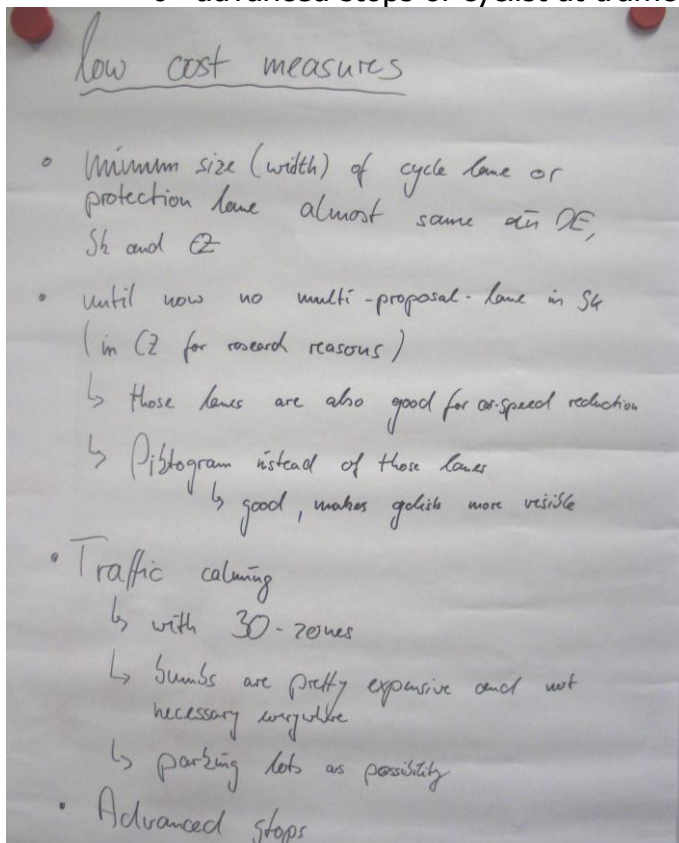 low cost measures
• Minimum size (width) of cycle lane or
protection lane almost same in DE,
Sk and CZ
• until now no multi-proposal-lane in Sk
(in CZ for research reasons)
↳ those lanes are also good for car-speed reduction
↳ Piktogram instead of those lanes
↳ good, makes more visible
• Traffic calming
↳ with 30-zones
↳ bumbs are pretty expensive and not
necessary everywhere
↳ parking lots as possibility
• Advanced stops